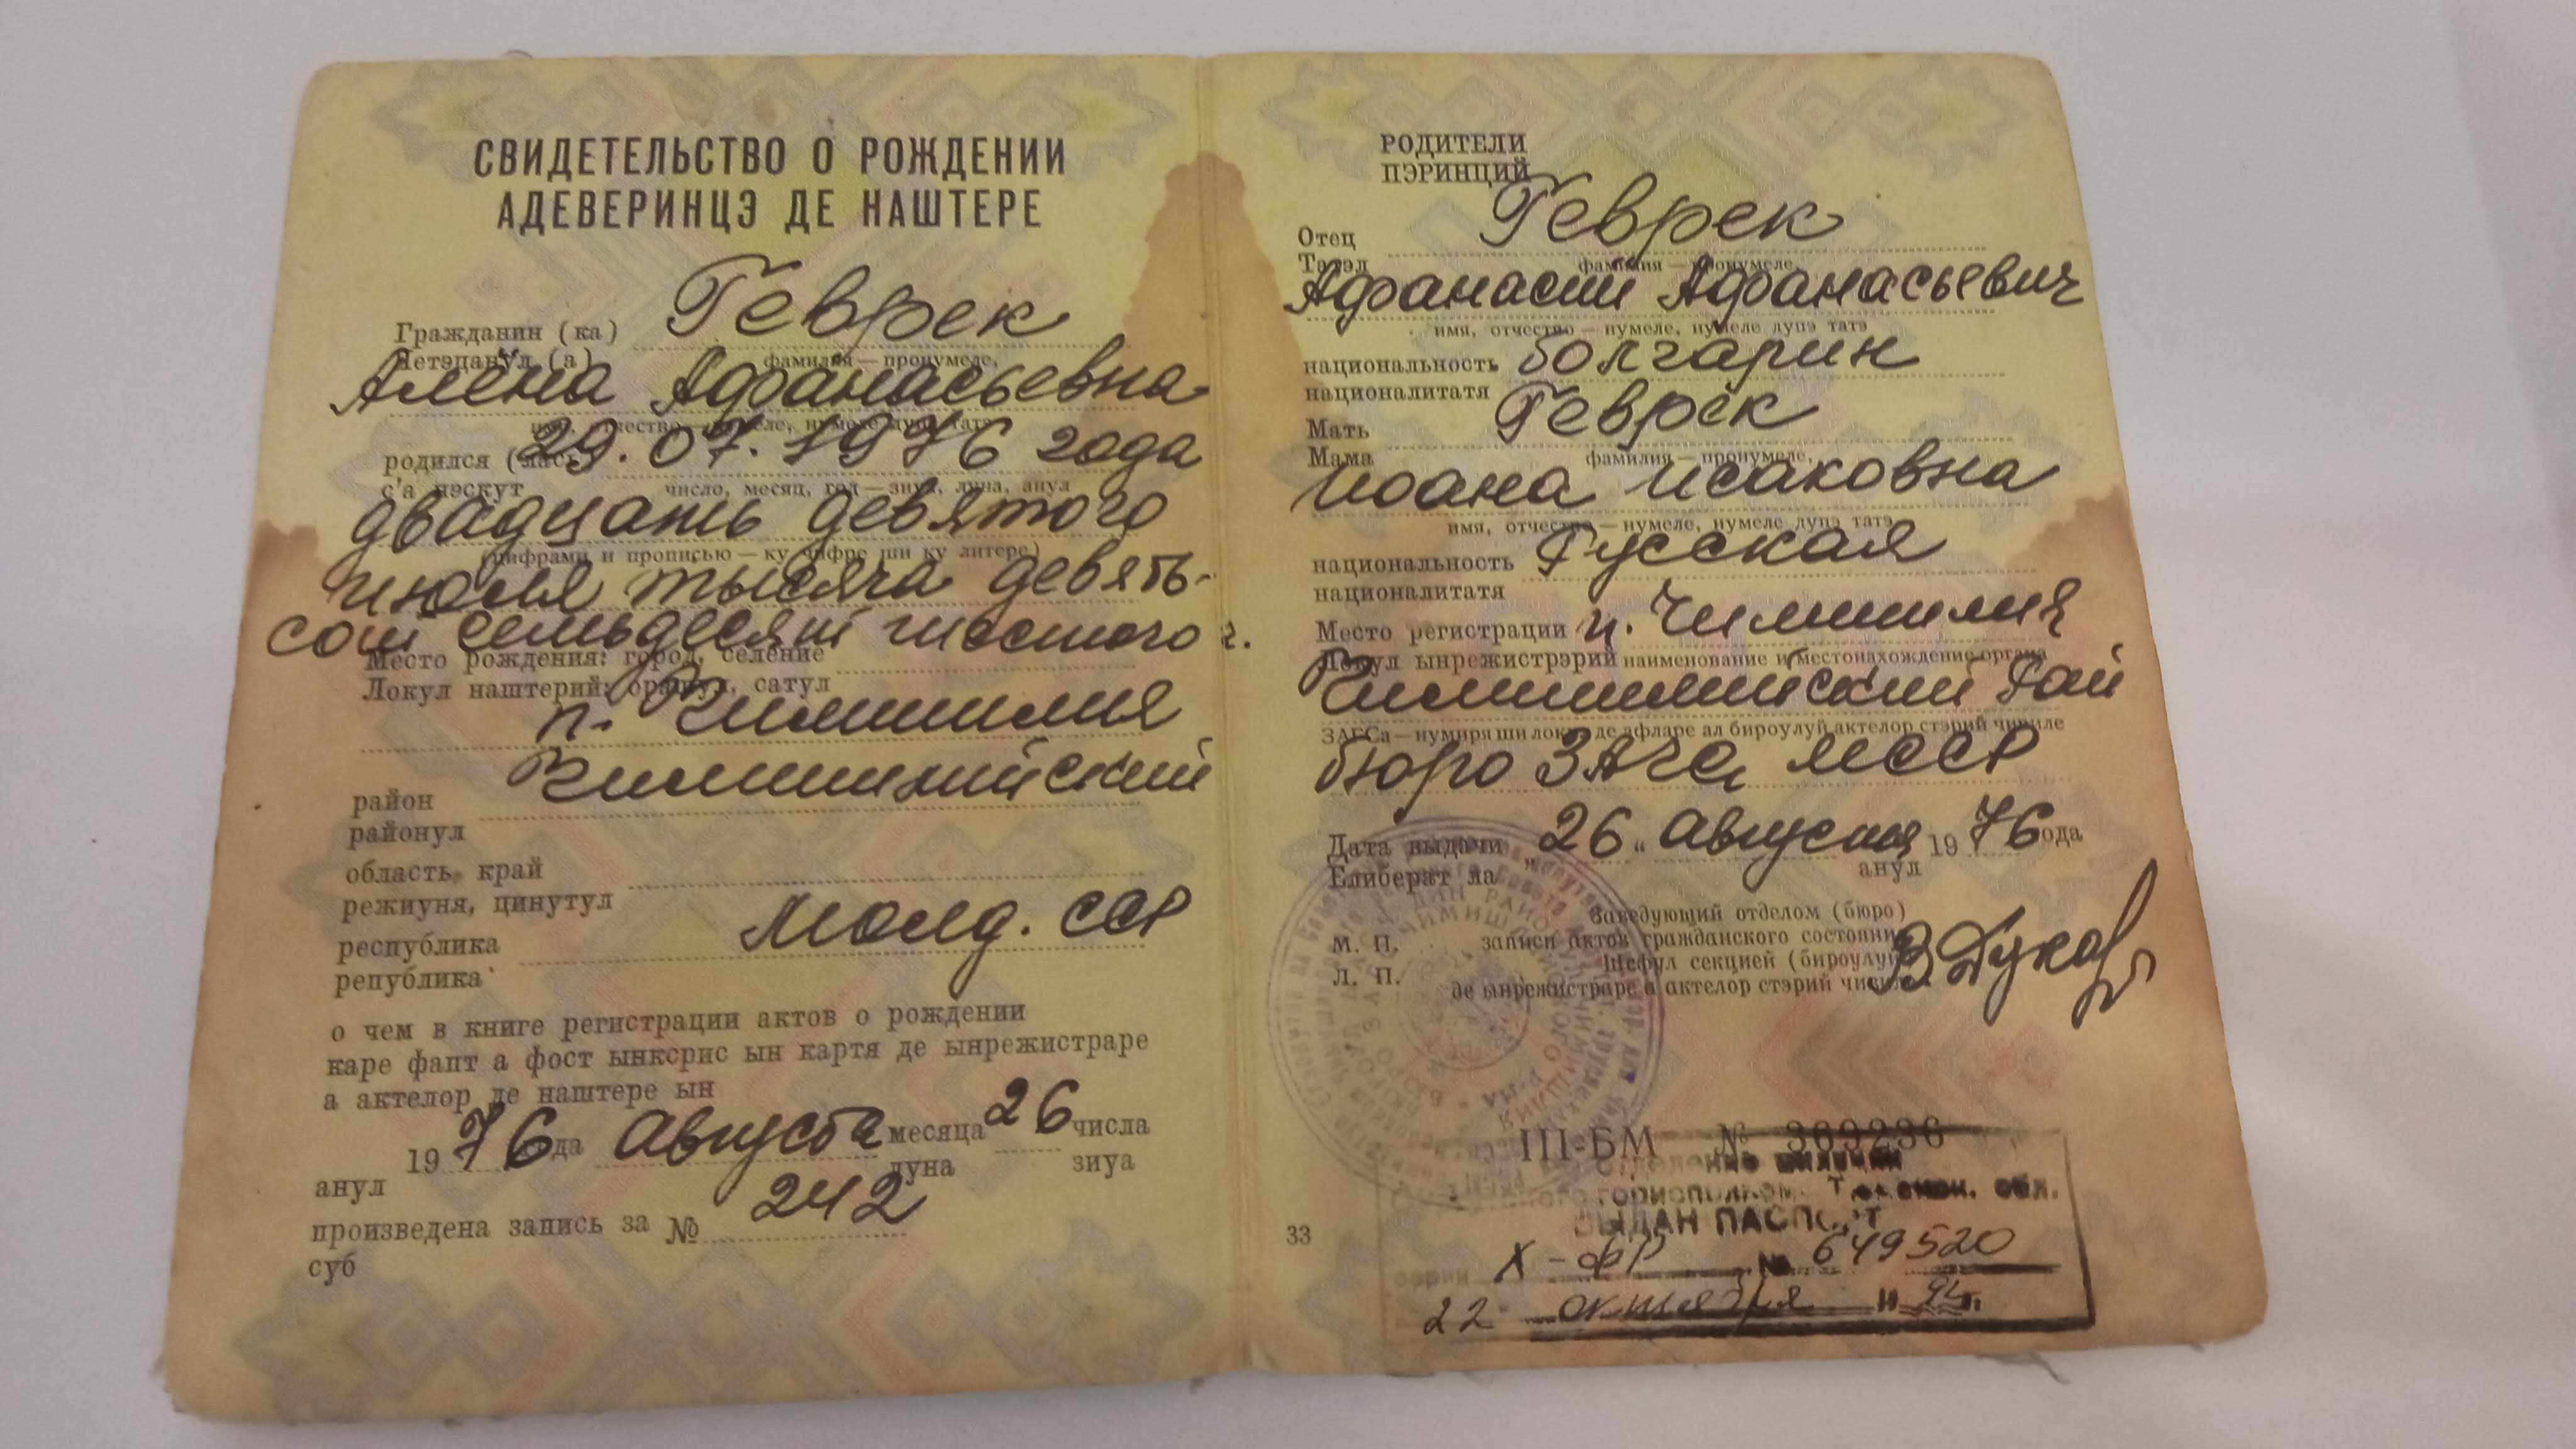 СВИДЕТЕЛЬСТВО О РОЖДЕНИИ
АДЕВЕРИНЦЭ ДЕ НАШТЕРЕ
Гражданин (ка) Геврек
Четэцанул (а)
фамилия — пронумеле,
Алёна Афанасьевна
родился (лась) 29.07.1976 года
с'а нэскут
число, месяц, год — зиуа, луна, анул
двадцать девятого
(цифрами и прописью — ку чифре ши ку литере)
июля тысяча девять-
сот семьдесят шестого г.
Место рождения: город, селение
Локул наштерий: орашул, сатул
п. Чимишлия
район Чимишлийский
районул
область, край
режиуня, цинутул
республика Молд. ССР
република
о чем в книге регистрации актов о рождении
каре фапт а фост ынскрис ын картя де ынрежистраре
а актелор де наштере ын
19 76 да августа месяца 26 числа
анул луна зиуа
произведена запись за № 242
суб
РОДИТЕЛИ
ПЭРИНЦИЙ
Отец Геврек
Татэл
фамилия — пронумеле,
Афанасий Афанасьевич
имя, отчество — нумеле, нумеле дупэ татэ
национальность болгарин
националитатя
Мать Геврек
Мама
фамилия — пронумеле,
Иоана Исаковна
имя, отчество — нумеле, нумеле дупэ татэ
национальность Русская
националитатя
Место регистрации п. Чимишлия
Локул ынрежистрэрий наименование и местонахождение органа
Чимишлийский Рай
ЗАГСа — нумиря ши локул де афларе ал бироулуй актелор стэрий чивиле
бюро ЗАГСа МССР
Дата выдачи „26“ августа 1976 ода
Елиберат ла анул
Заведующий отделом (бюро)
М. П. записи актов гражданского состояния
Шефул секцией (бироулуй)
Л. П. де ынрежистраре а актелор стэрий чивиле
III-БМ № 369236
отделение милиции
горисполкома обл.
ВЫДАН ПАСПОРТ
серии X-ФР № 649520
22 октября 19 94 г.
33